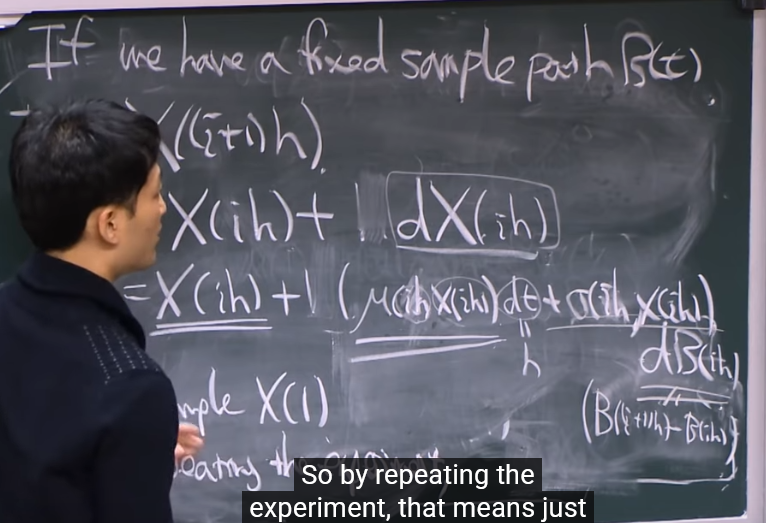 If we have a fixed sample path B(t).
X((i+1)h)
X(ih) + dX(ih)
= X(ih) + (μ(ih, X(ih)) dt + σ(ih, X(ih))
dB(ih)
h
(B((i+1)h) - B(ih))
mple X(1)
eating the
So by repeating the
experiment, that means just